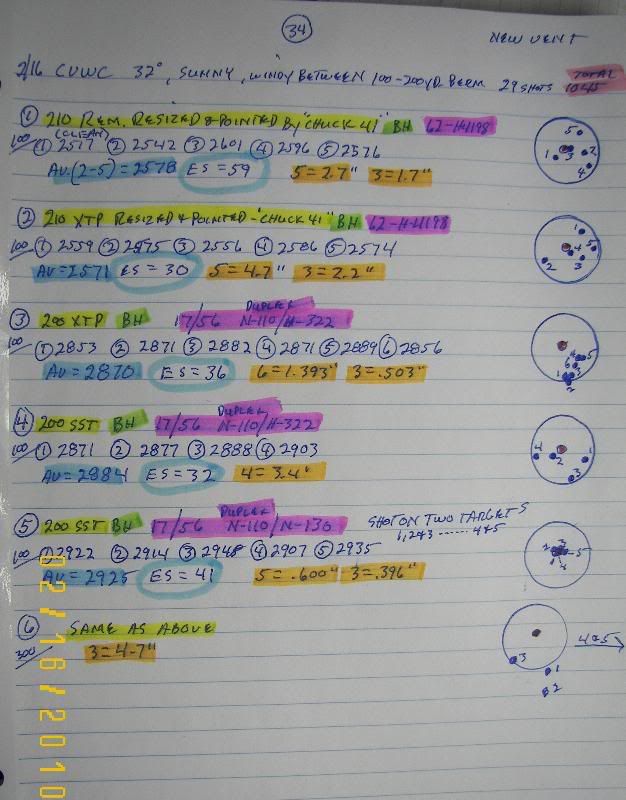 34
NEW VENT
2/16 CVWC 32°, SUNNY, WINDY BETWEEN 100-200 YD BERM 29 SHOTS TOTAL 1045
① 210 REM. RESIZED & POINTED BY "CHUCK 41" BH 62-H4198
100 (CLEAN) ① 2517 ② 2542 ③ 2601 ④ 2596 ⑤ 2576
AV.(2-5) = 2578 ES = 59 5 = 2.7" 3 = 1.7"
5
1 3 2
4
② 210 XTP RESIZED & POINTED - "CHUCK 41" BH 62-H-4198
100 ① 2559 ② 2575 ③ 2556 ④ 2586 ⑤ 2574
AV = 2571 ES = 30 5 = 4.7" 3 = 2.2"
1
4 5
2 3
DUPLEX
③ 200 XTP BH 17/56 N-110/H-322
100 ① 2853 ② 2871 ③ 2882 ④ 2871 ⑤ 2889 ⑥ 2856
AV = 2870 ES = 36 6 = 1.393" 3 = .503"
DUPLEX
④ 200 SST BH 17/56 N-110/H-322
100 ① 2871 ② 2877 ③ 2888 ④ 2903
AV = 2884 ES = 32 4 = 3.4"
4 2 1
3
DUPLEX
⑤ 200 SST BH 17/56 N-110/N-130 SHOT ON TWO TARGETS
1,2+3 ...... 4+5
100 ① 2922 ② 2914 ③ 2948 ④ 2907 ⑤ 2935
AV = 2925 ES = 41 5 = .600" 3 = .396"
⑥ SAME AS ABOVE
300 3 = 4-7"
4&5
3
1
2
02/16/2010